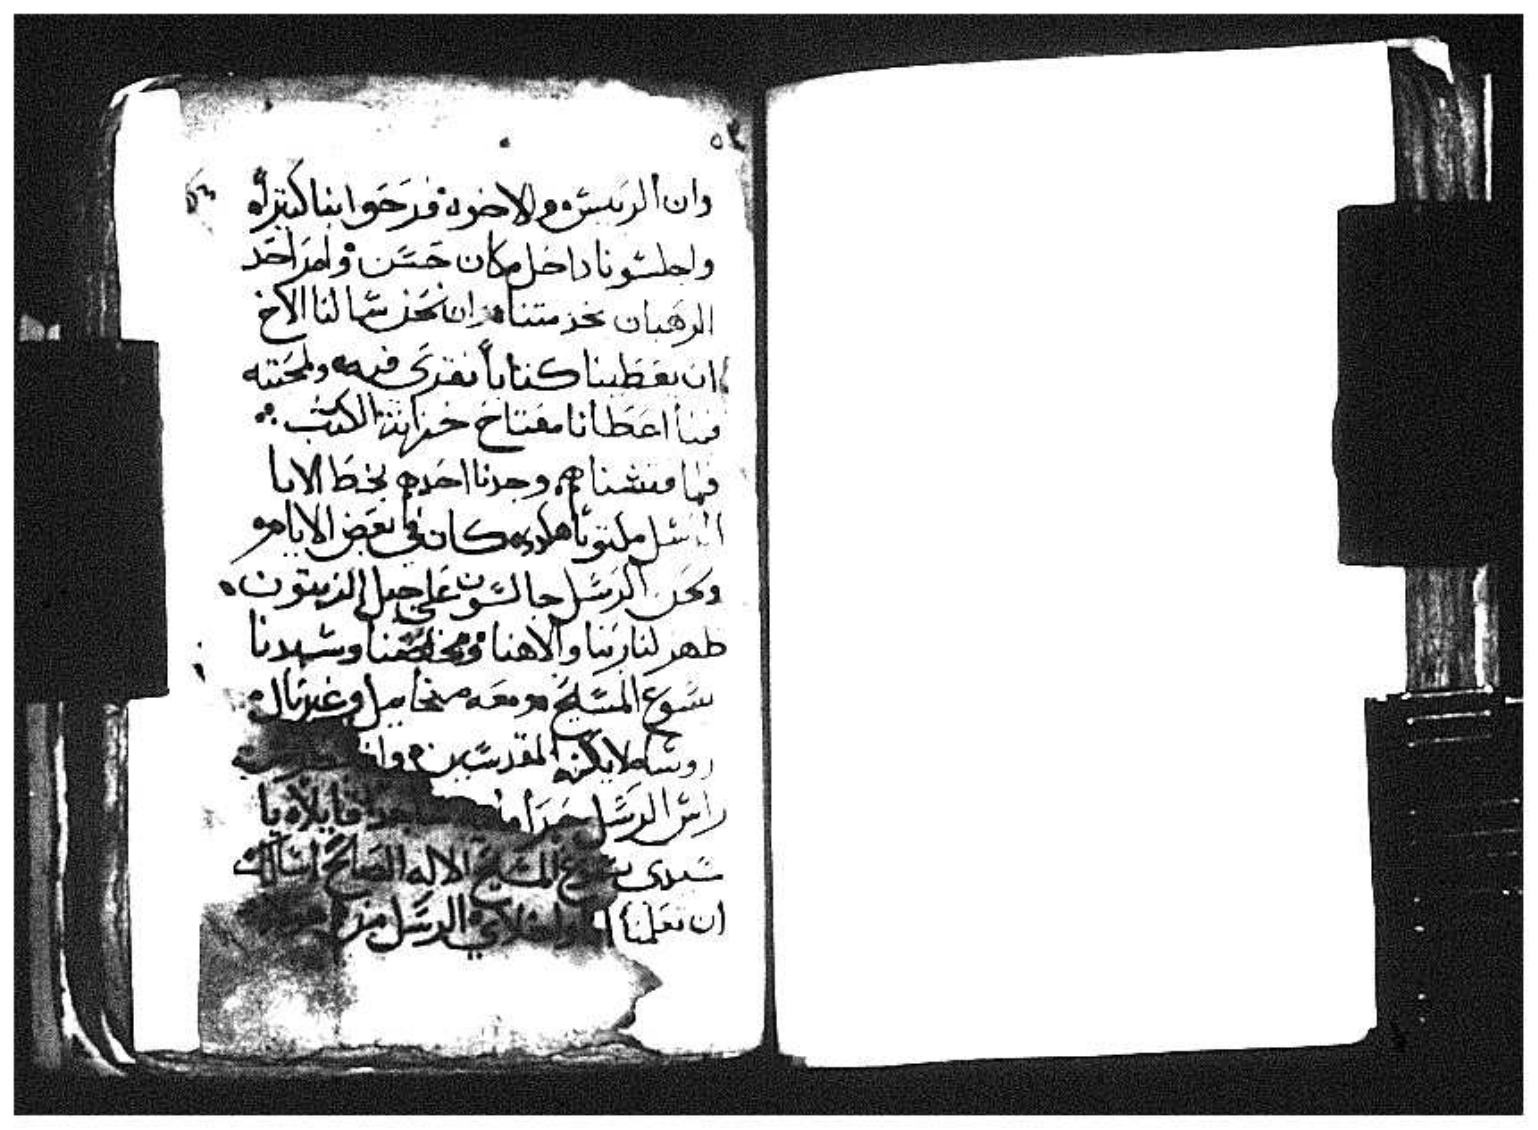 وان الريس والاخوة فرحوا بنا كتيراً
واجلسونا داخل مكان حسن وامر احد
الرهبان بخدمتنا ان نحن سالنا الاخ
ان يعطينا كتاباً نقرى فيه ولمحبته
فينا اعطانا مفتاح خزانة الكتب
فلما فتشناهم وجدنا احدهم بخط الابا
الرسل مكتوباً هكدى كان في بعض الايام
ونحن الرسل جالسون على جبل الزيتون
ظهر لنا ربنا والاهنا ومخلصنا وسيدنا
يسوع المسيح ومعه ميخاييل وغبريال
روسا ملايكته المقدسين
راس الرسل خر قايلاً يا
سيدى يسوع المسيح الاله الصالح اسالك
ان تعلمنا الرسل من